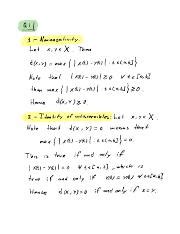 Q1)
1 - Nonnegativity.
Let x, y ∈ X. Then
d(x,y) = max { |x(t) - y(t)| : t ∈ [a,b] }
Note that |x(t) - y(t)| ≥ 0 ∀ t ∈ [a,b]
max { |x(t) - y(t)| : t ∈ [a,b] } ≥ 0
Hence d(x,y) ≥ 0.
2 - Identity of indiscernibles: Let x, y ∈ X.
Note that d(x,y) = 0 means that
max { |x(t) - y(t)| : t ∈ [a,b] } = 0
This is true if and only if
|x(t) - y(t)| = 0 ∀ t ∈ [a,b], which is
true if and only if x(t) = y(t) ∀ t ∈ [a,b]
Hence d(x,y) = 0 if and only if x = y.